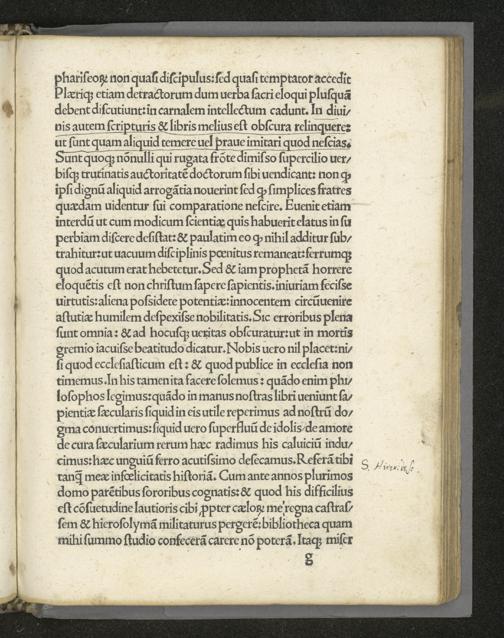 phariseoꝝ non quasi discipulus: sed quasi temptator accedit
Plæriqꝫ etiam detractorum dum uerba sacri eloqui plusquã
debent discutiunt: in carnalem intellectum cadunt. In diui⸗
nis autem scripturis & libris melius est obscura relinquere:
ut sunt quam aliquid temere uel praue imitari quod nescias.
Sunt quoqꝫ nõnulli qui rugata frõte dimisso supercilio uer⸗
bisqꝫ trutinatis auctoritatẽ doctorum sibi uendicant: non qꝫ
ipsi dignũ aliquid arrogãtia nouerint sed qꝫ simplices fratres
quædam uidentur sui comparatione nescire. Euenit etiam
interdũ ut cum modicum scientiæ quis habuerit elatus in su
perbiam discere desistat: & paulatim eo qꝫ nihil additur sub⸗
trahitur: ut uacuum disciplinis pœnitus remaneat: ferrumqꝫ
quod acutum erat hebetetur. Sed & iam prophetã horrere
eloquẽtis est non christum sapere sapientis. iniuriam fecisse
uirtutis: aliena possidere potentiæ: innocentem circũuenire
astutiæ humilem despexisse nobilitatis. Sic erroribus plena
sunt omnia: & ad hocusqꝫ ueritas obscuratur: ut in mortis
gremio iacuisse beatitudo dicatur. Nobis uero nil placet: ni⸗
si quod ecclesiasticum est: & quod publice in ecclesia non
timemus. In his tamen ita facere solemus: quãdo enim phi⸗
losophos legimus: quãdo in manus nostras libri ueniunt sa⸗
pientiæ sæcularis siquid in eis utile reperimus ad nostrũ do⸗
gma conuertimus: siquid uero superfluũ de idolis: de amore
de cura sæcularium rerum hæc radimus his caluiciũ indu⸗
cimus: hæc unguiũ ferro acutissimo desecamus. Referã tibi
tanqꝫ meæ infœlicitatis historiã. Cum ante annos plurimos
domo parẽtibus sororibus cognatis: & quod his difficilius
est cõsuetudine lautioris cibi ꝓpter cæloꝝ me regna castras⸗
sem & hierosolymã militaturus pergerẽ: bibliotheca quam
mihi summo studio confecerã carere nõ poterã. Itaqꝫ miser
g